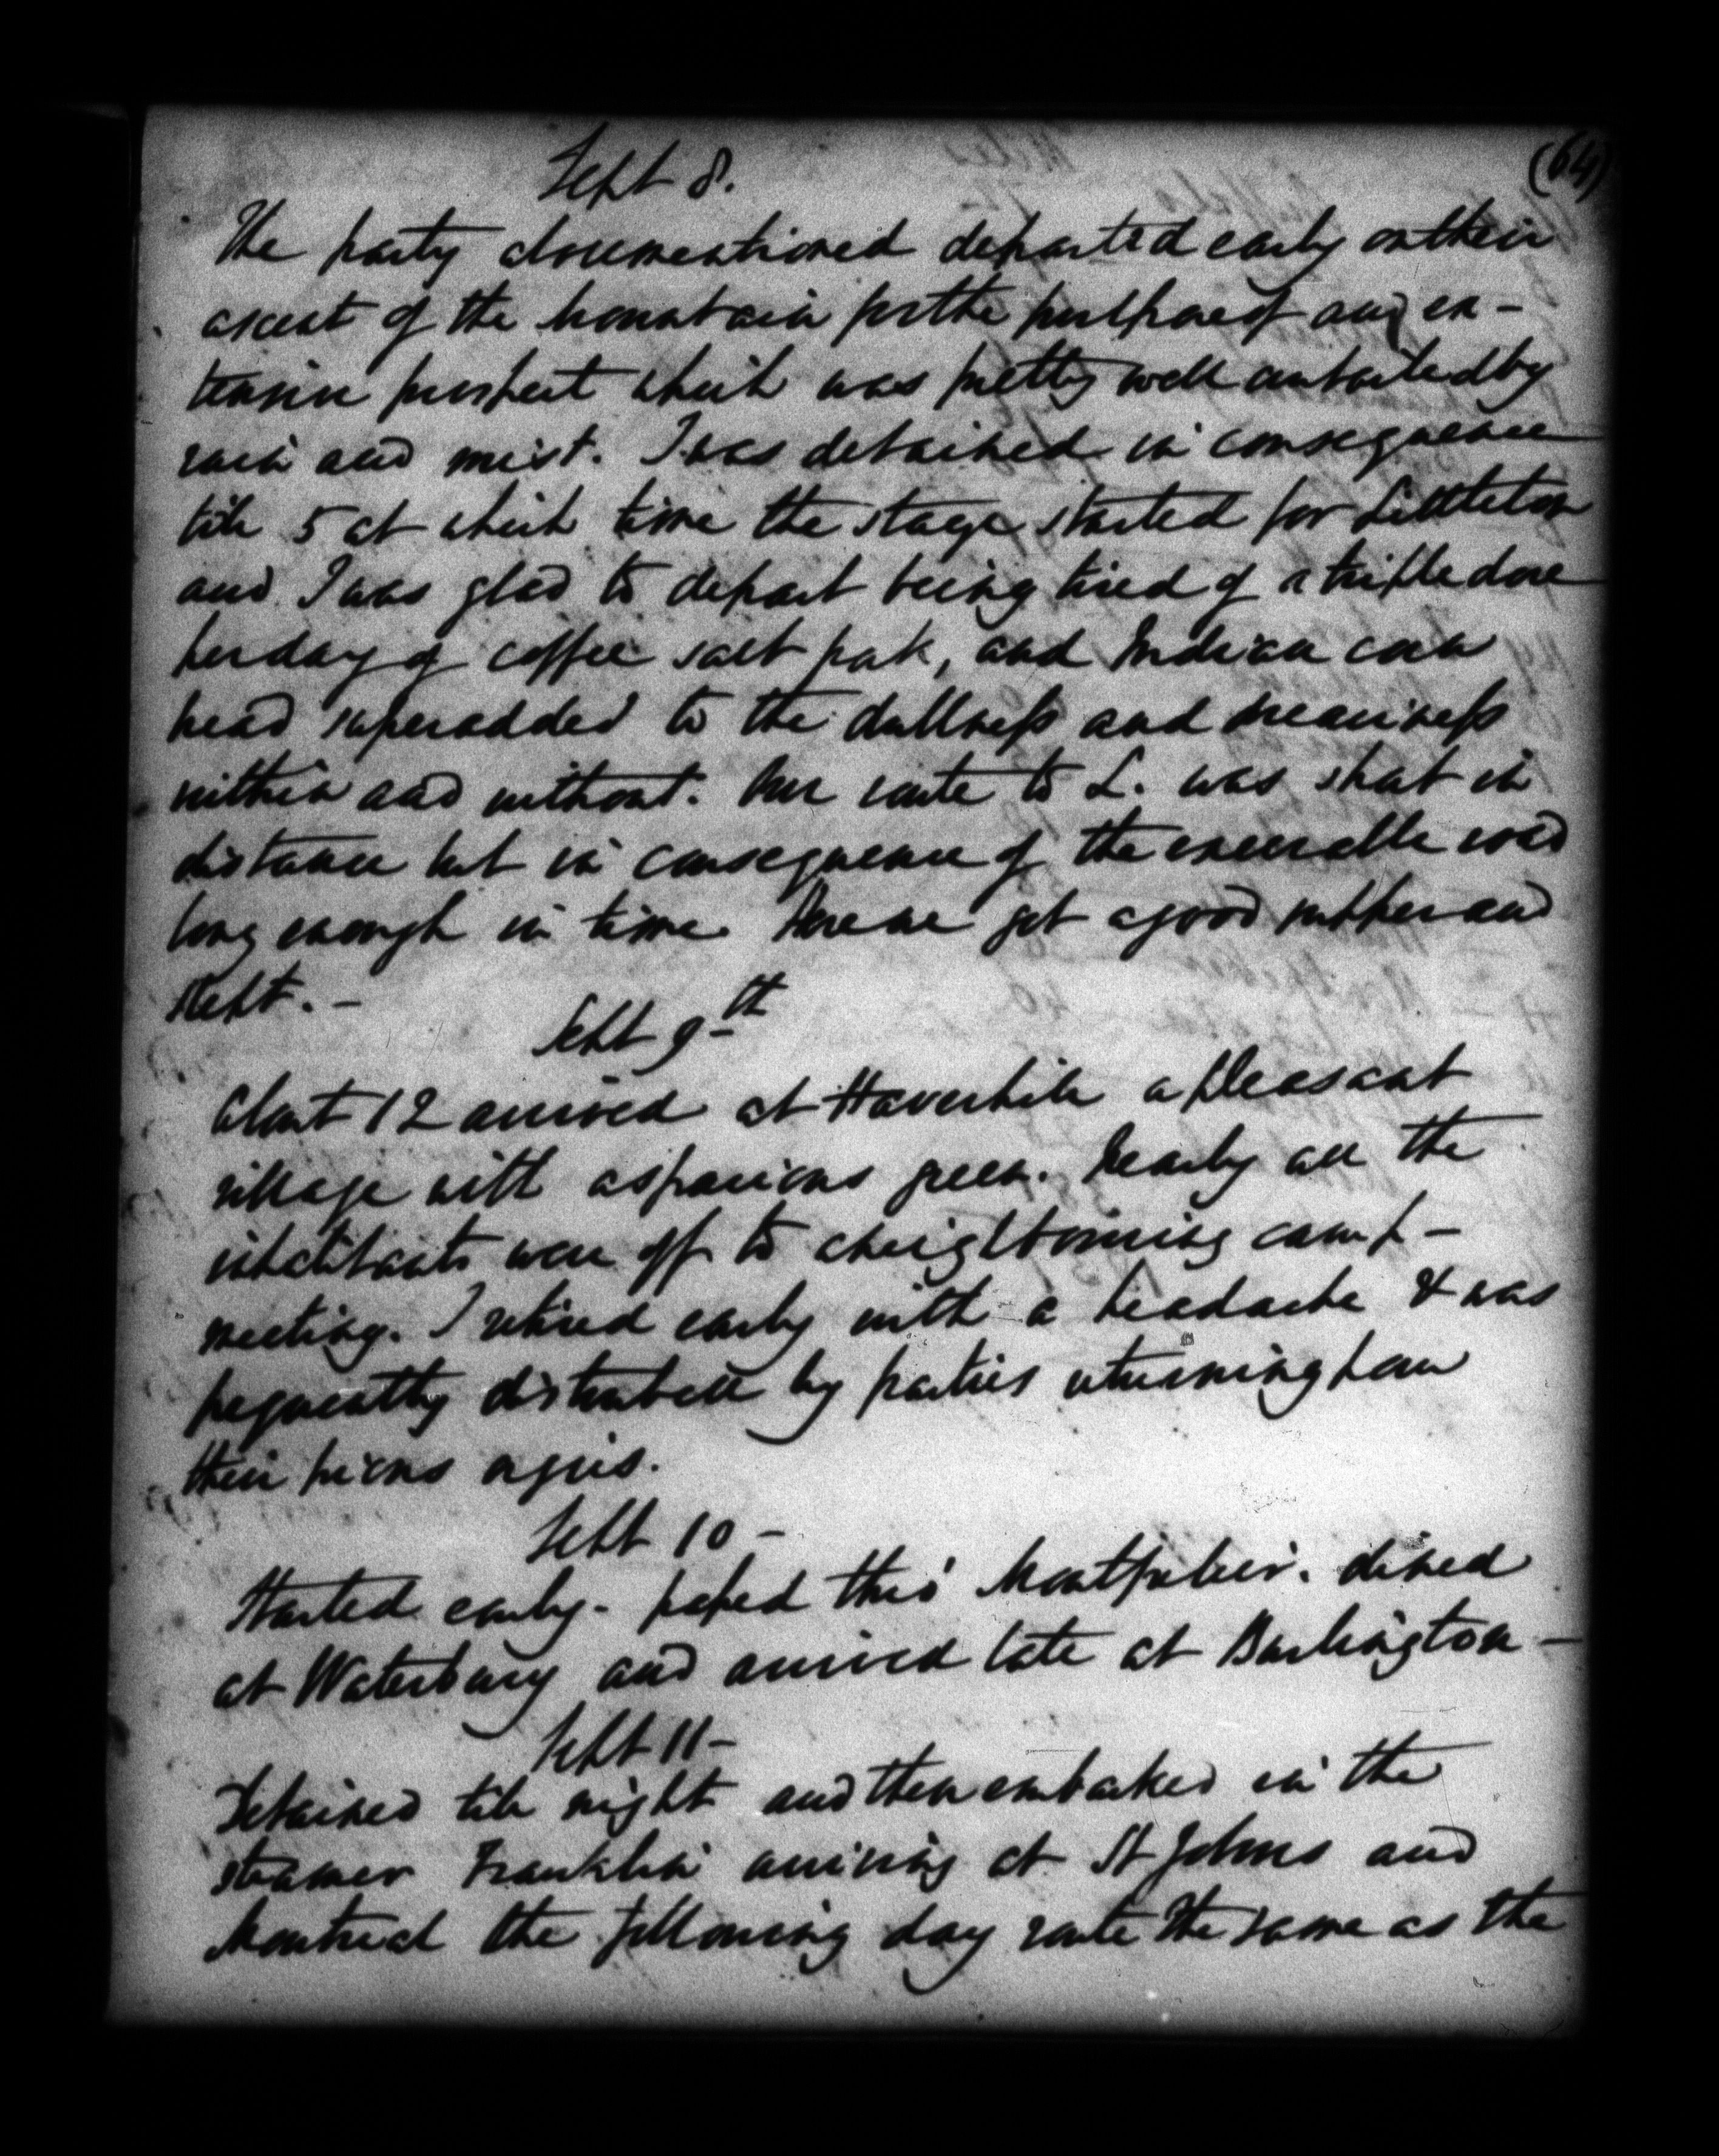 (64)
Sept 8.
The party abovementioned departed early on their
ascent of the Mountain for the purpose of an ex-
tensive prospect which was pretty well curtailed by
rain and mist. I was detained in consequence
till 5 at which time the stage started for Littleton
and I was glad to depart being tired of a triple dose
per day of coffee salt pork, and Indian corn
bread superadded to the dullness and dreariness
within and without. Our route to L. was short in
distance but in consequence of the execrable road
long enough in time. Here we got a good supper and
slept. -
Sept 9th
About 12 arrived at Haverhill a pleasant
village with a spacious green. Nearly all the
inhabitants were off to a neighbouring camp-
meeting. I retired early with a headache & was
frequently disturbed by parties returning from
their pious orgies.
Sept 10 -
Started early - passed thro' Montpelier. dined
at Waterbury and arrived late at Burlington -
Sept 11 -
Detained till night and then embarked in the
steamer Franklin arriving at St Johns and
Montreal the following day route the same as the